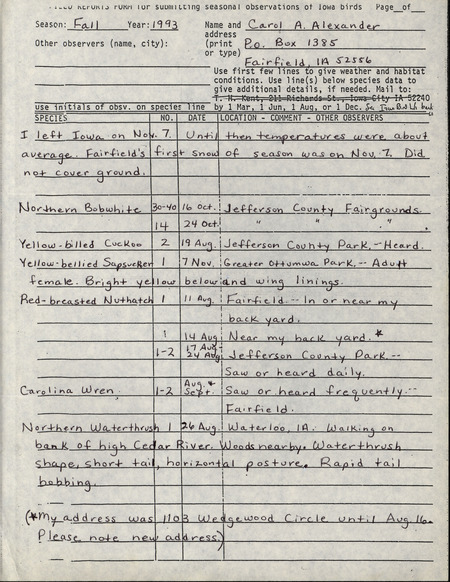 FIELD REPORTS FORM for submitting seasonal observations of Iowa birds Page_of_
Season: Fall Year: 1993 Name and Carol A. Alexander
address
Other observers (name, city): (print P.O. Box 1385
or type)
Fairfield, IA 52556
Use first few lines to give weather and habitat
conditions. Use line(s) below species data to
give additional details, if needed. Mail to:
T. H. Kent, 211 Richards St., Iowa City IA 52240
use initials of obsv. on species line by 1 Mar, 1 Jun, 1 Aug, or 1 Dec.
SPECIES NO. DATE LOCATION - COMMENT - OTHER OBSERVERS
I left Iowa on Nov. 7. Until then temperatures were about
average. Fairfield's first snow of season was on Nov. 7. Did
not cover ground.
Northern Bobwhite 30-40 16 Oct. Jefferson County Fairgrounds
14 24 Oct. " " " .
Yellow-billed Cuckoo 2 19 Aug. Jefferson County Park, -- Heard.
Yellow-bellied Sapsucker 1 7 Nov. Greater Ottumwa Park, -- Adult
female. Bright yellow below and wing linings.
Red-breasted Nuthatch 1 11 Aug. Fairfield -- In or near my
back yard.
1 14 Aug. Near my back yard. *
1-2 17 Aug - 24 Aug. Jefferson County Park --
Saw or heard daily.
Carolina Wren 1-2 Aug. & Sept. Saw or heard frequently --
Fairfield.
Northern Waterthrush 1 26 Aug. Waterloo, IA. Walking on
bank of high Cedar River. Woods nearby. Waterthrush
shape, short tail, horizontal posture. Rapid tail
bobbing.
(*My address was 1103 Wedgewood Circle until Aug 16.
Please note new address.)